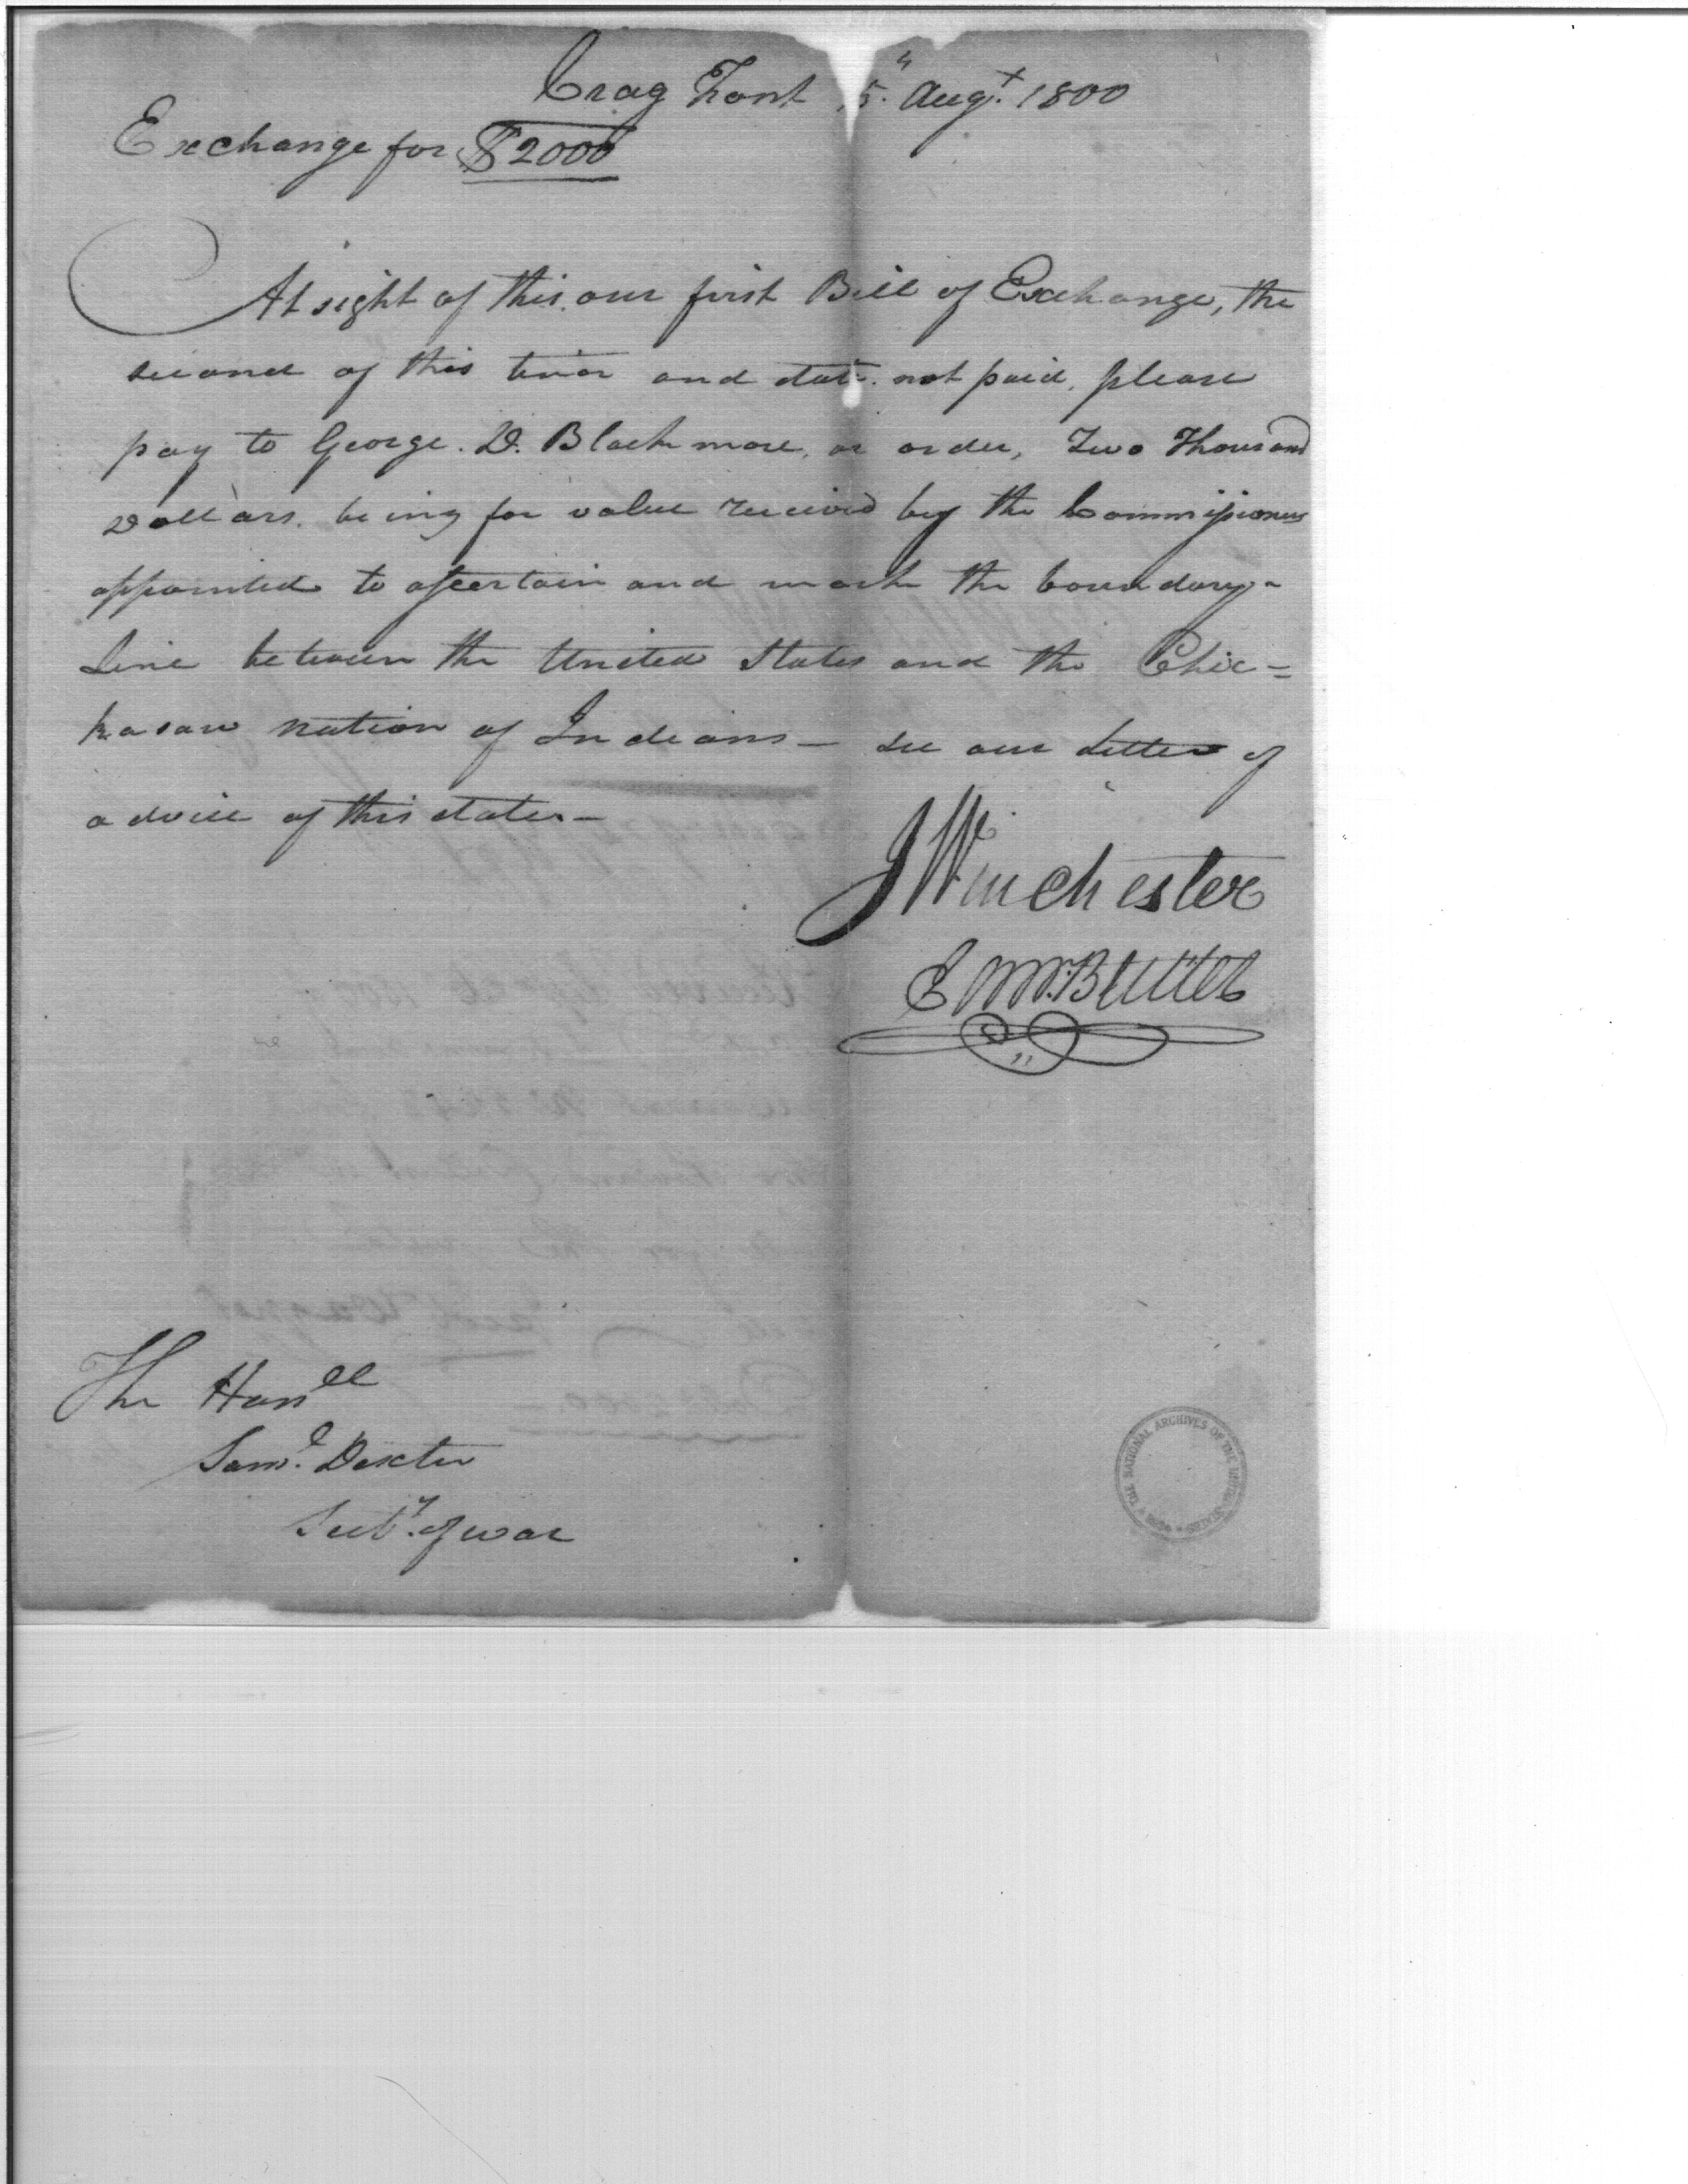 Crag Font 5" Augt. 1800
Exchange for $2000
At sight of this our first Bill of Exchange, the
second of this tenor and date not paid, please
pay to George. D. Blackmore, or order, Two Thousand
Dollars. being for value received by the Commissioners
appointed to ascertain and mark the boundary-
Line between the United States and the Chic=
kasaw nation of Indians— see our Letter of
advice of this date.—
J Winchester
E Butler
The Honll
Saml. Dexter
Secty. of war
THE NATIONAL ARCHIVES OF THE UNITED STATES